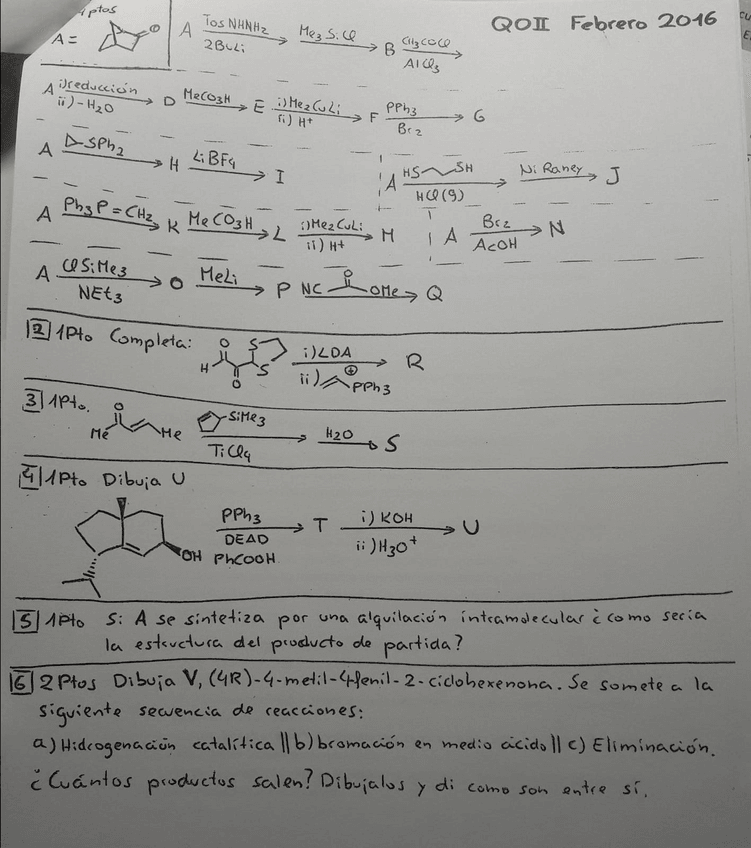 ptos
QOII Febrero 2016
A = O
A TosNHNH2 2BuLi Me3SiCl B CH3COCl AlCl3
A i) reducción ii) -H2O D MeCO3H E i) Me2CuLi ii) H+ F PPh3 Br2 G
A SPh2 H LiBF4 I
A HS SH HCl(g) Ni Raney J
A Ph3P=CH2 K MeCO3H L i) Me2CuLi ii) H+ M
A Br2 AcOH N
A ClSiMe3 NEt3 O MeLi P NC O OMe Q
2 1Pto Completa: H O O S S i) LDA ii) ⊕ PPh3 R
3 1Pto. O Me Me SiMe3 TiCl4 H2O S
4 1Pto Dibuja U
OH PPh3 DEAD PhCOOH T i) KOH ii) H3O+ U
5 1Pto S: A se sintetiza por una alquilación intramolecular ¿como sería
la estructura del producto de partida?
6 2Ptos Dibuja V, (4R)-4-metil-4-fenil-2-ciclohexenona. Se somete a la
siguiente secuencia de reacciones:
a) Hidrogenación catalítica || b) bromación en medio ácido || c) Eliminación.
¿Cuántos productos salen? Dibujalos y di como son entre sí.